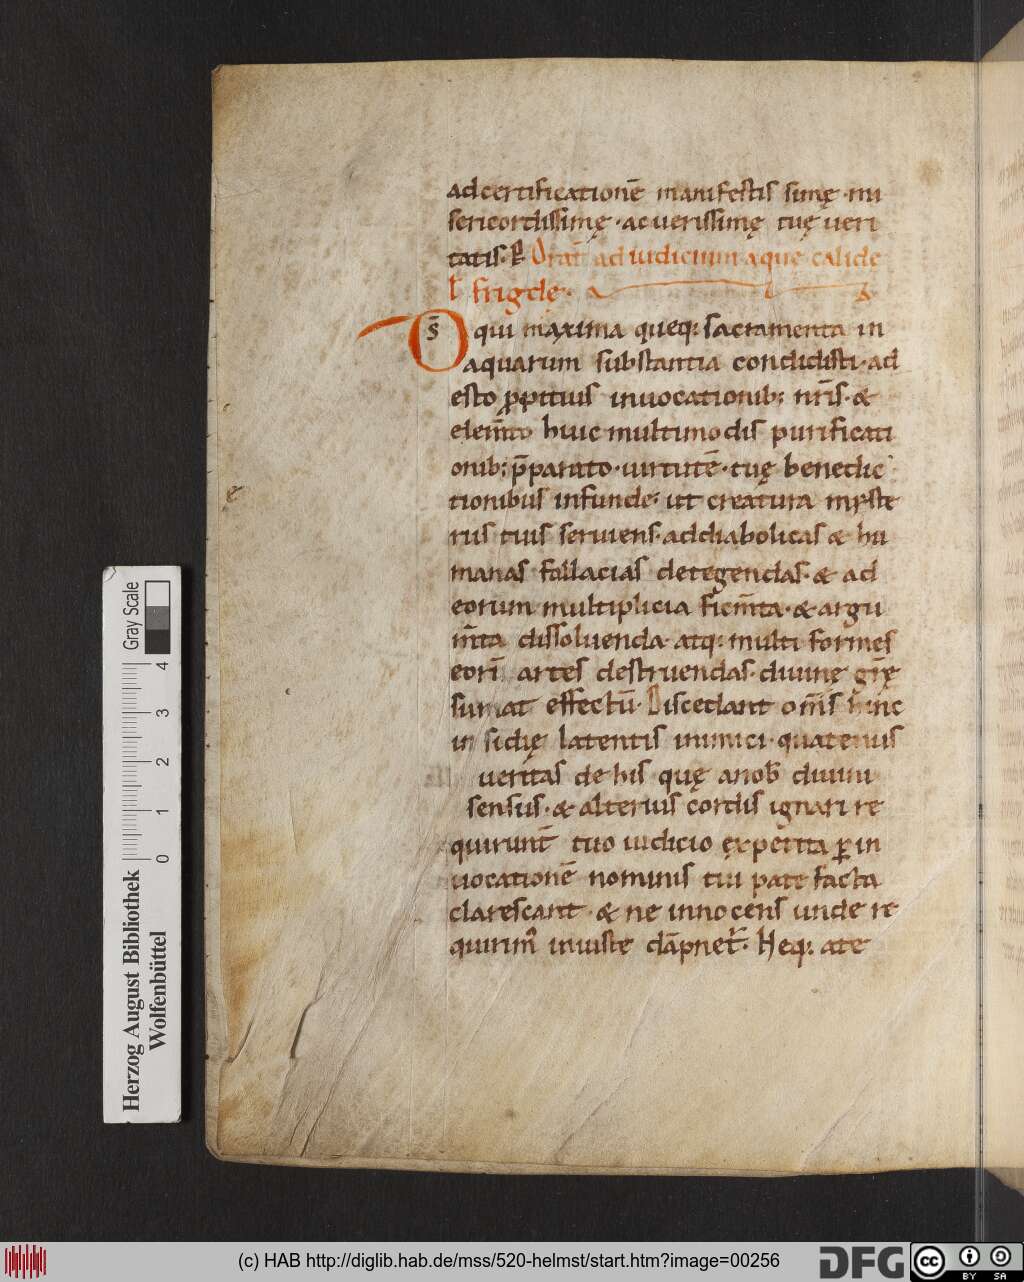 ad certificationē manifestissimę · mi
sericordissimę · ac uerissimę tuę ueri
tatis · ꝑ Orat̄ ad iudicium aque calide
ł frigde ·
Ōs qui maxima queq; sacramenta in
aquarum substantia condidisti · ad
esto ꝓpitius inuocationib; nr̄is · &
elem̄to huic multimodis purificati
onib; p̄parato · uirtutē · tuę benedic
tionibus infunde; ut creatura myste
riis tuis seruiens · ad diabolicas & hu
manas fallacias detegendas · & ad
eorum multiplicia ficm̄ta · & argu
m̄ta dissoluenda · atq; multi formes
eorū artes destruendas · diuine gr̄ę
sumat effectū · Discedant om̄s hinc
insidię latentis inimici · quatenus
ueritas de his quę a nob̄ diuini
sensus · & alterius cordis ignari re
quirunt̄ tuo iudicio exper̄ita ꝑ in
uocationē nominis tui patefacta
clarescant · & ne innocens unde re
quirim᷒ iniuste dāpnet᷑ · Heq; a te
Herzog August Bibliothek
Wolfenbüttel
0 1 2 3 4
Gray Scale
(c) HAB http://diglib.hab.de/mss/520-helmst/start.htm?image=00256
DFG
cc BY SA